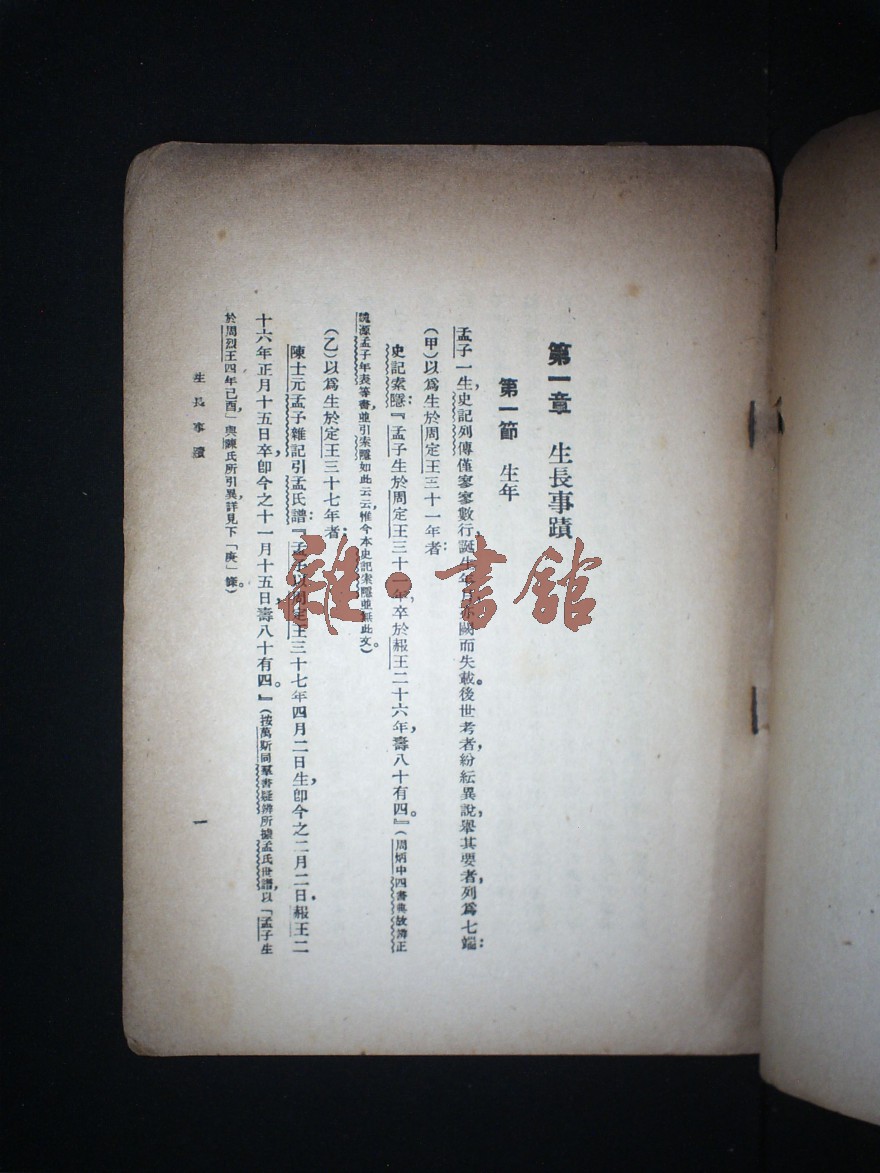 第一章　生長事蹟
第一節　生年
孟子一生，史記列傳僅寥寥數行，誕生年月亦闕而失載。後世考者，紛紜異說，舉其要者，列爲七端：
（甲）以爲生於周定王三十一年者：
史記索隱：『孟子生於周定王三十一年，卒於赧王二十六年，壽八十有四。』（周炳中四書典故辨正
魏源孟子年表等書，並引索隱如此云云，惟今本史記索隱並無此文）。
（乙）以爲生於定王三十七年者：
陳士元孟子雜記引孟氏譜：『孟子以周定王三十七年四月二日生，卽今之二月二日。赧王二
十六年正月十五日卒，卽今之十一月十五日，壽八十有四。』（按萬斯同羣書疑辨所據孟氏世譜，以「孟子生
於周烈王四年己酉，」與陳氏所引異，詳見下「庚」條。）
生長事蹟
一
雜·書館